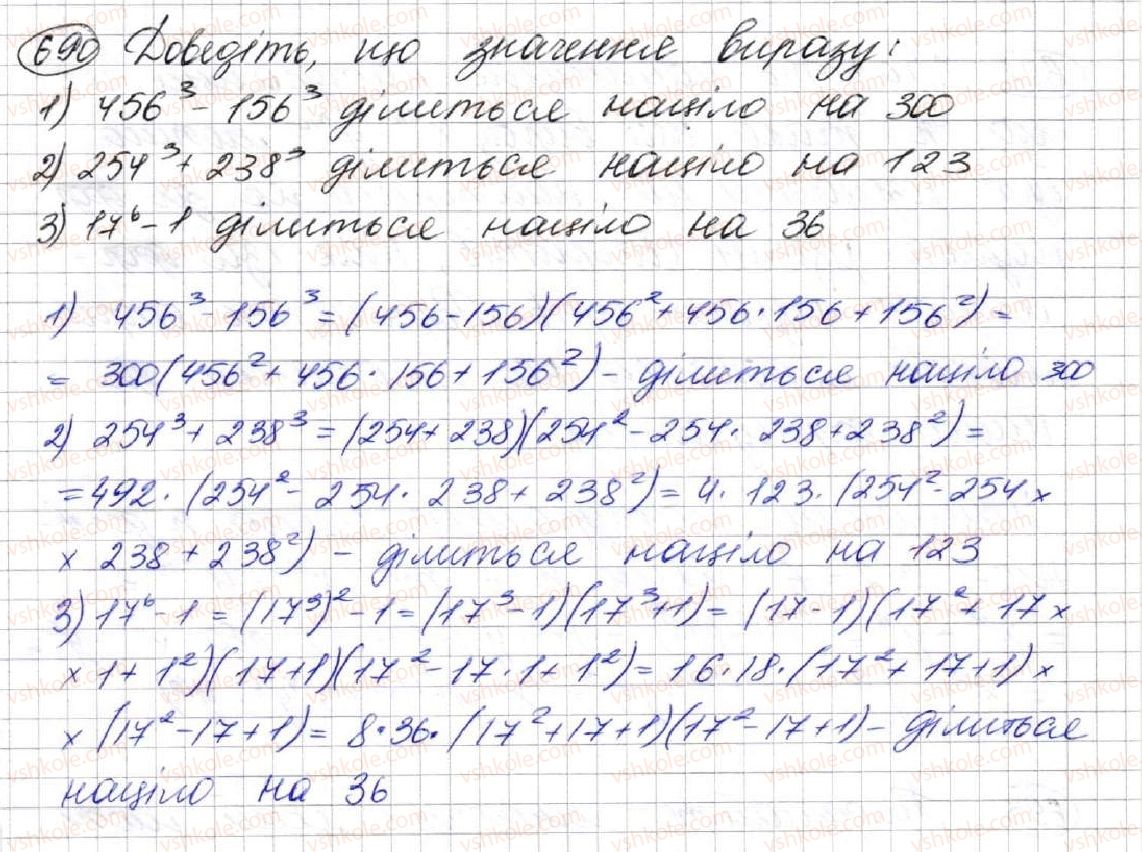 690 Доведіть, що значення виразу:
1) 456³ - 156³ ділиться націло на 300
2) 254³ + 238³ ділиться націло на 123
3) 17⁶ - 1 ділиться націло на 36
1) 456³ - 156³ = (456 - 156)(456² + 456 · 156 + 156²) =
= 300(456² + 456 · 156 + 156²) - ділиться націло 300
2) 254³ + 238³ = (254 + 238)(254² - 254 · 238 + 238²) =
= 492 · (254² - 254 · 238 + 238²) = 4 · 123 · (254² - 254 ×
× 238 + 238²) - ділиться націло на 123
3) 17⁶ - 1 = (17³)² - 1 = (17³ - 1)(17³ + 1) = (17 - 1)(17² + 17 ×
× 1 + 1²)(17 + 1)(17² - 17 · 1 + 1²) = 16 · 18 · (17² + 17 + 1) ×
× (17² - 17 + 1) = 8 · 36 · (17² + 17 + 1)(17² - 17 + 1) - ділиться
націло на 36